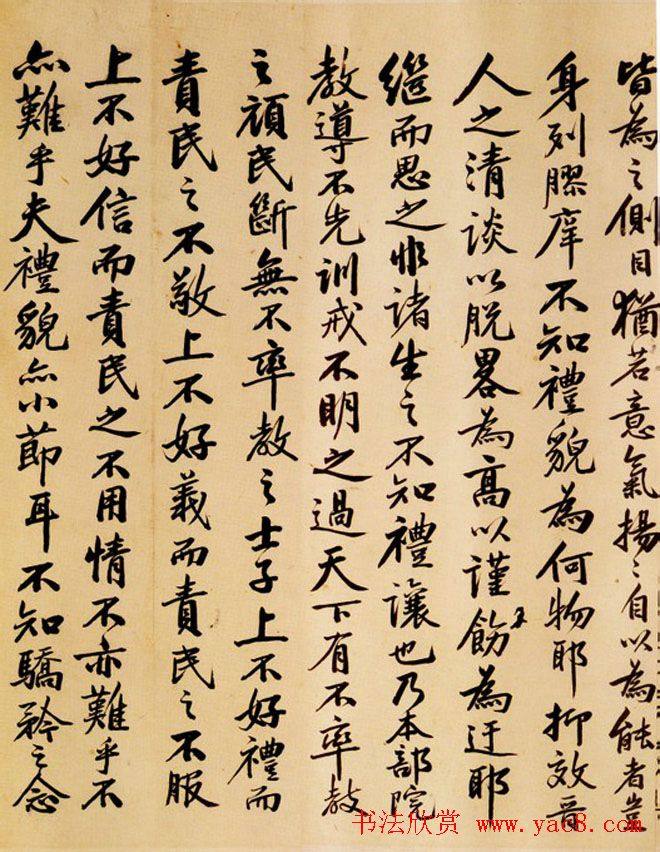 皆為之側目猶若意氣揚〻自以為能者豈
身列膠庠不知禮貌為何物耶抑效晉
人之清談以脫畧為高以謹飭為迂耶
繼而思之非諸生之不知禮讓也乃本部院
教導不先訓戒不明之過天下有不率教
之頑民斷無不率教之士子上不好禮而
責民之不敬上不好義而責民之不服
上不好信而責民之不用情不亦難乎不
亦難乎夫禮貌亦小節耳不知驕矜之念
书法欣赏 www.yac8.com